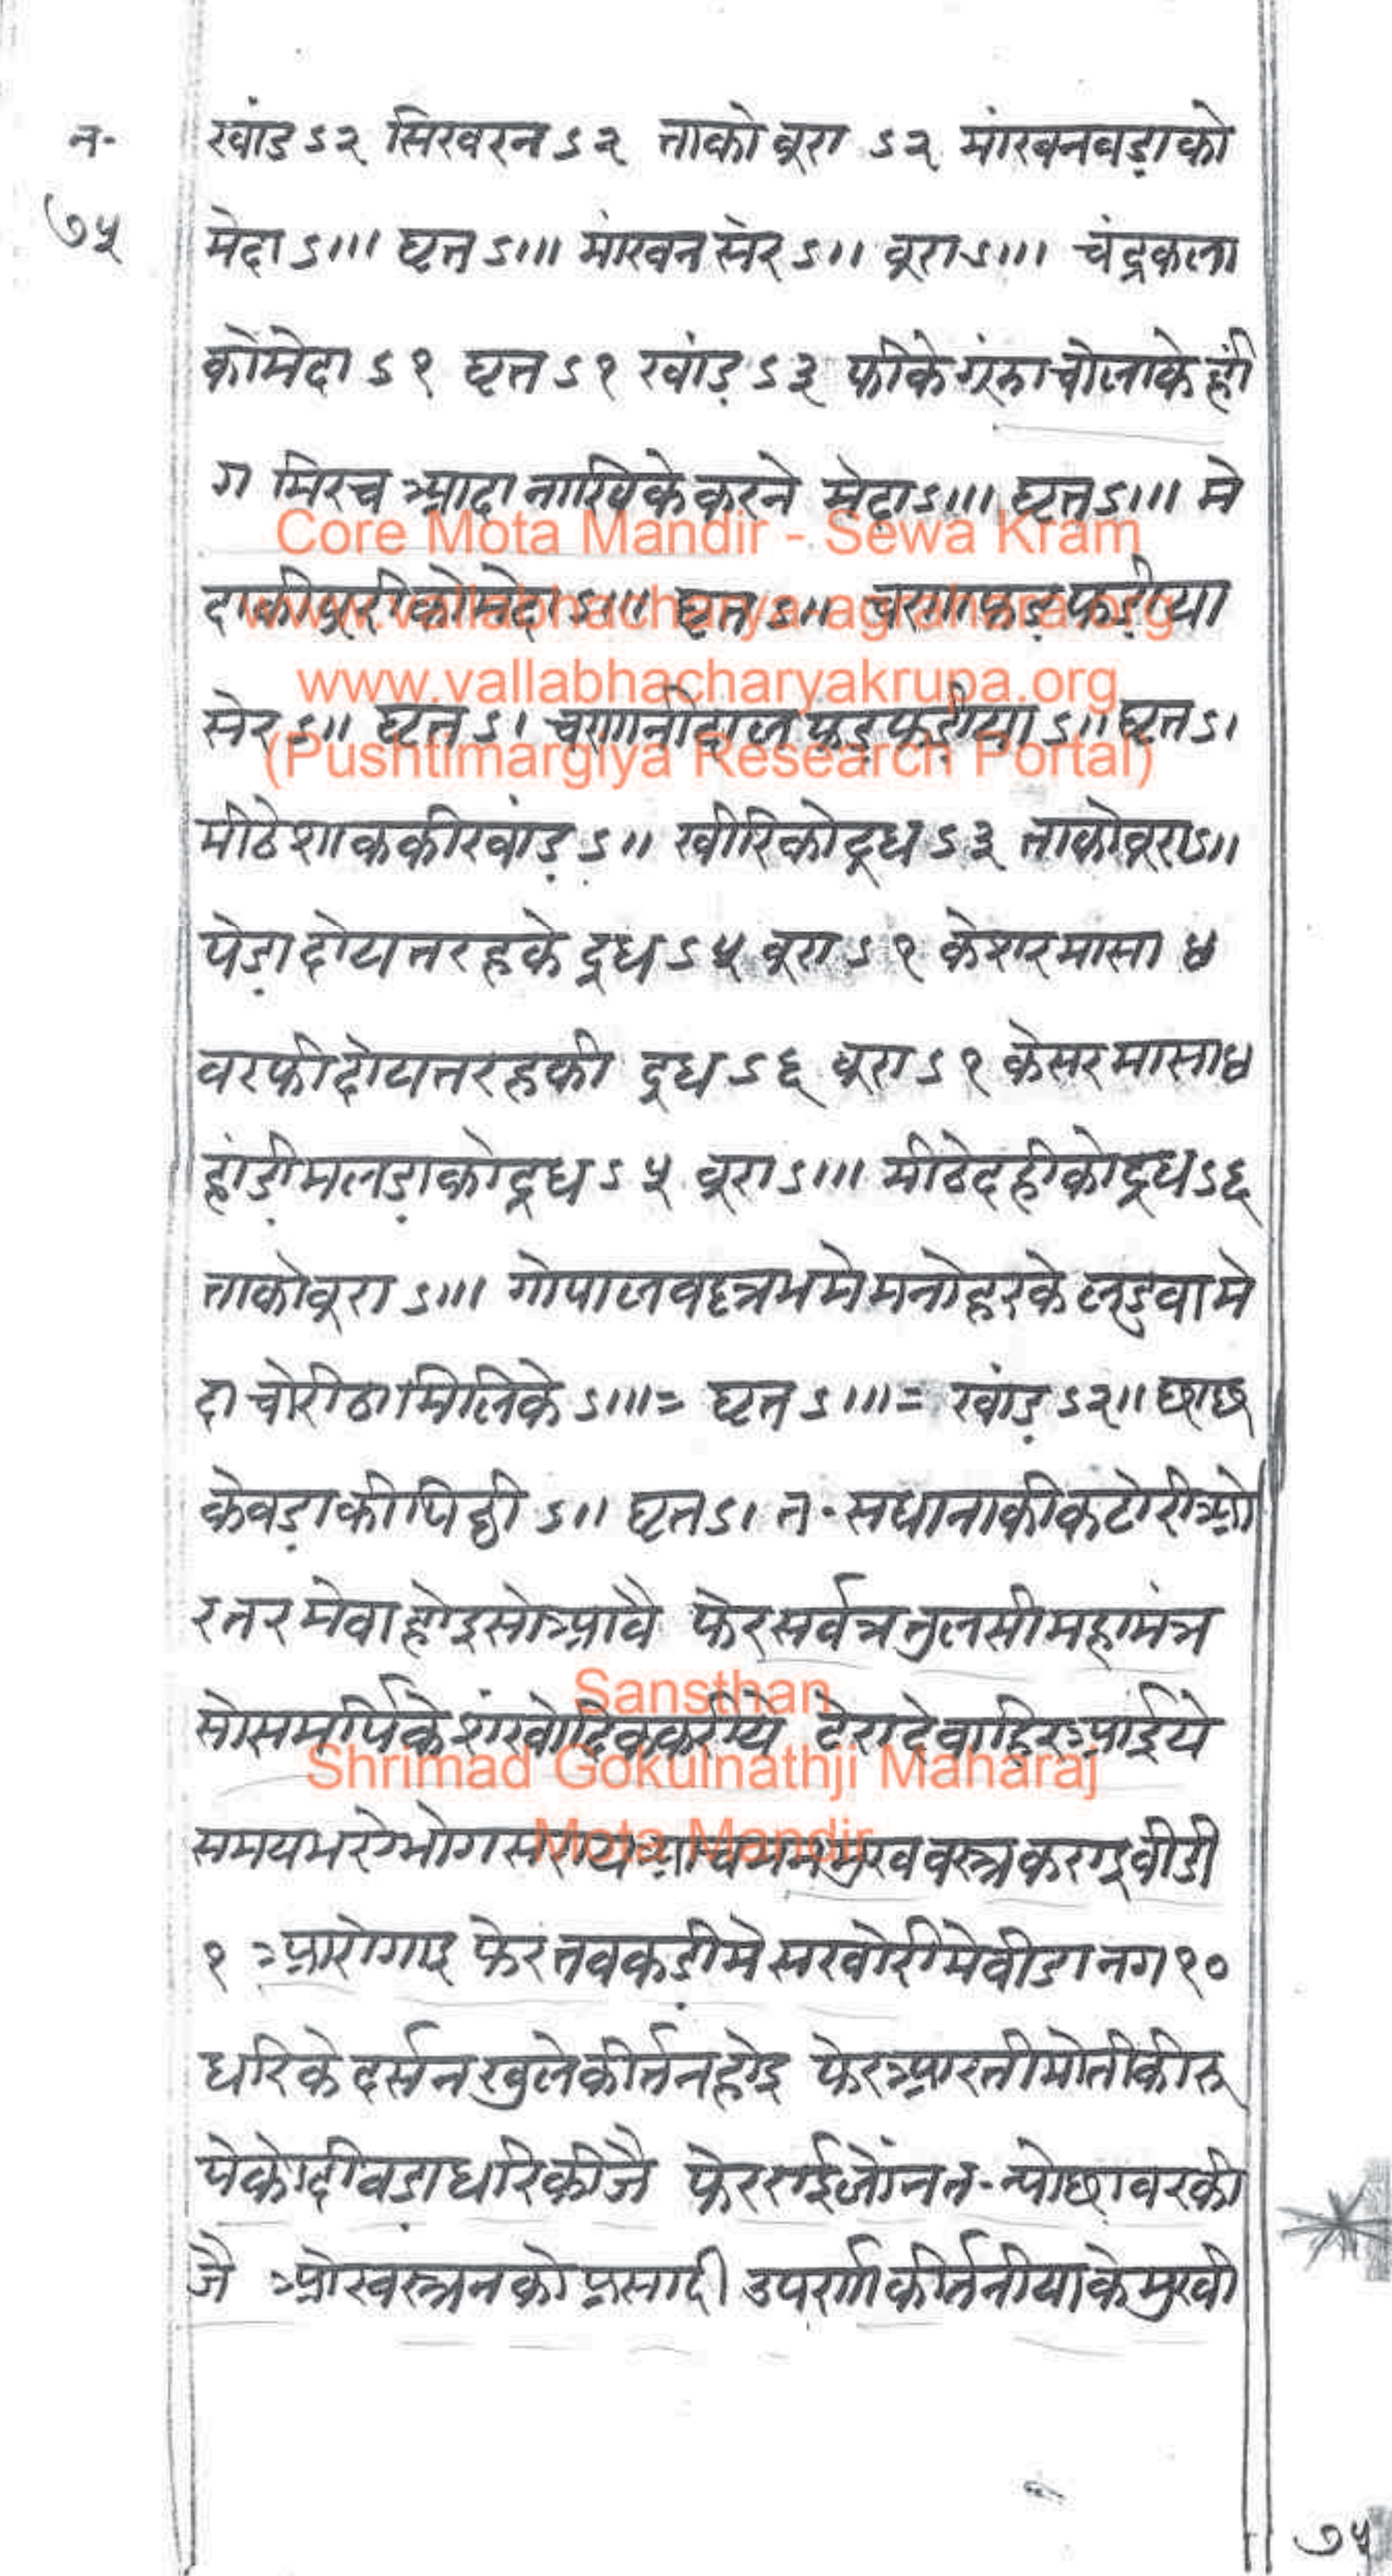 न॰
७५
खांड ऽ२ सिखरन ऽ२ ताको बूरा ऽ२ मांखनवड़ा को
मेदा ऽ॥। घृत ऽ॥। मांखन सेर ऽ॥ बूरा ऽ॥। चंद्रकला
कों मेदा ऽ१ घृत ऽ१ खांड़ ऽ३ फीके चोलाके हीं
ग मिरच आदा नाखिके करने मेदा ऽ॥। घृत ऽ॥। मे
दाकी पूरी को मेदा ऽ॥। घृत ऽ॥ चणा फड़फड़ीया
सेर ऽ॥ घृत ऽ। चणानी दाल फड़फड़ीया ऽ॥ घृत ऽ।
मीठे शाककी खांड़ ऽ॥ खीरिको दूध ऽ३ ताको बूरा ऽ॥
पेड़ा दोय तरहके दूध ऽ५ बूरा ऽ१ केशर मासा ४
बरफी दोय तरहकी दूध ऽ६ बूरा ऽ१ केसर मासा ४
हांड़ी मलड़ाको दूध ऽ५ बूरा ऽ॥। मीठे दहीको दूध ऽ६
ताको बूरा ऽ॥। गोपालवल्लभमे मनोहरके लडुवा मे
दा चोरीठा मिलिके ऽ॥।= घृत ऽ॥।= खांड़ ऽ२॥ छाछ
के वड़ाकी पिठ्ठी ऽ॥ घृत ऽ। न॰ सधानाकी कटोरी ओ
र तर मेवा होइ सो आवै फेर सर्वत्र तुलसी महामंत्र
सो समर्पिके शंखोदिक करीये टेरा दे बाहिर आईये
समय भरे भोग सराय आचमन मुखवस्त्र कराइ वीडी
१ आरोगाइ फेर तबकड़ीमे सखोरीमे वीडा नग १०
धरिके दर्सन खुले कीर्त्तन होइ फेर आरती मोतीकी रु
पेको दीवड़ा धरि कीजै फेर राई लोंन न॰ न्योछावर की
जै ओरवस्त्रनको प्रसादी उपर्णा कीर्तनीयाके मुखी
७५
Core Mota Mandir - Sewa Kram
www.vallabhacharya-agrahara.org
www.vallabhacharyakrupa.org
(Pushtimargiya Research Portal)
Sansthan
Shrimad Gokulnathji Maharaj
Mota Mandir